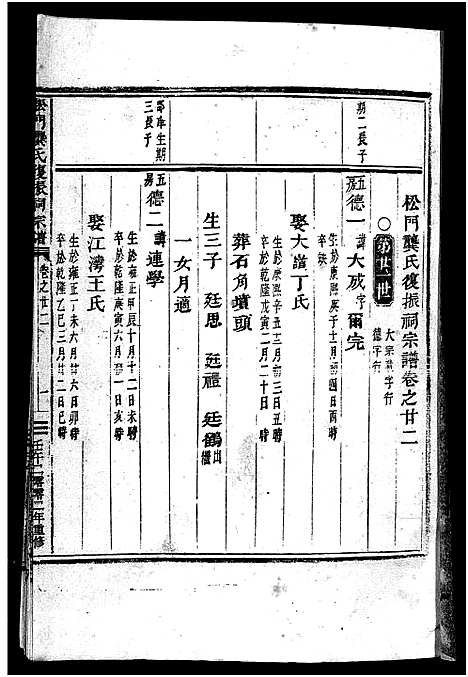 松門龔氏復振祠宗譜卷之廿二
大宗
字行
德字行
○第廿一世
期二長子
五房德一
諱大成字爾完
生於康熙庚子十一月初四日酉時
卒缺
娶大溢丁氏
生於康熙辛丑三月初三日丑時
卒於乾隆戊寅二月二十日酉時
葬石角墳頭
生三子 廷恩 廷禮 廷鶴出繼
一女月適
生期三長子
五房德二
諱連學
生於雍正甲辰十月十二日未時
卒於乾隆庚寅六月一日亥時
娶江灣王氏
生於雍正丁未六月廿六日時
卒於乾隆乙巳三月廿二日巳時
松門龔氏復振祠宗譜
卷之廿二
一
壬午二零零二年重修